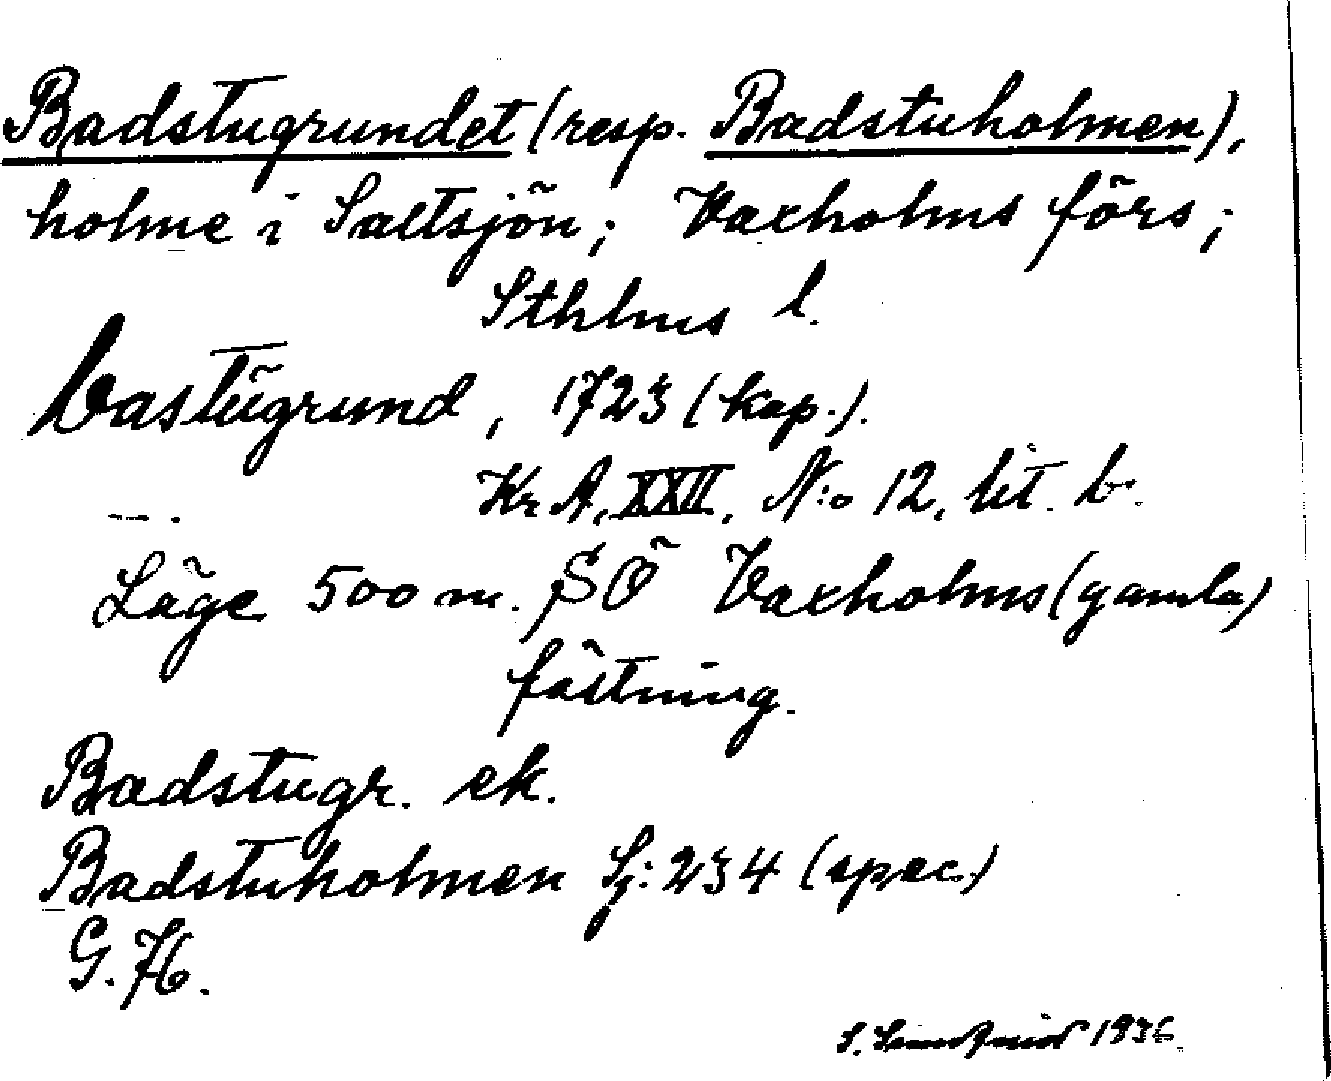 Badstugrundet (resp. Badstuholmen),
holme i Saltsjön; Vaxholms förs;
Sthlms l.
bastŭgrund, 1723 (kap.).
Kr A, XXII, N:o 12, lit. b.
Läge 500 m. SÖ Vaxholms (gamla)
fästning.
Badstugr. ek.
Badstuholmen Sj: 234 (spec.)
G. H.
S. 1936